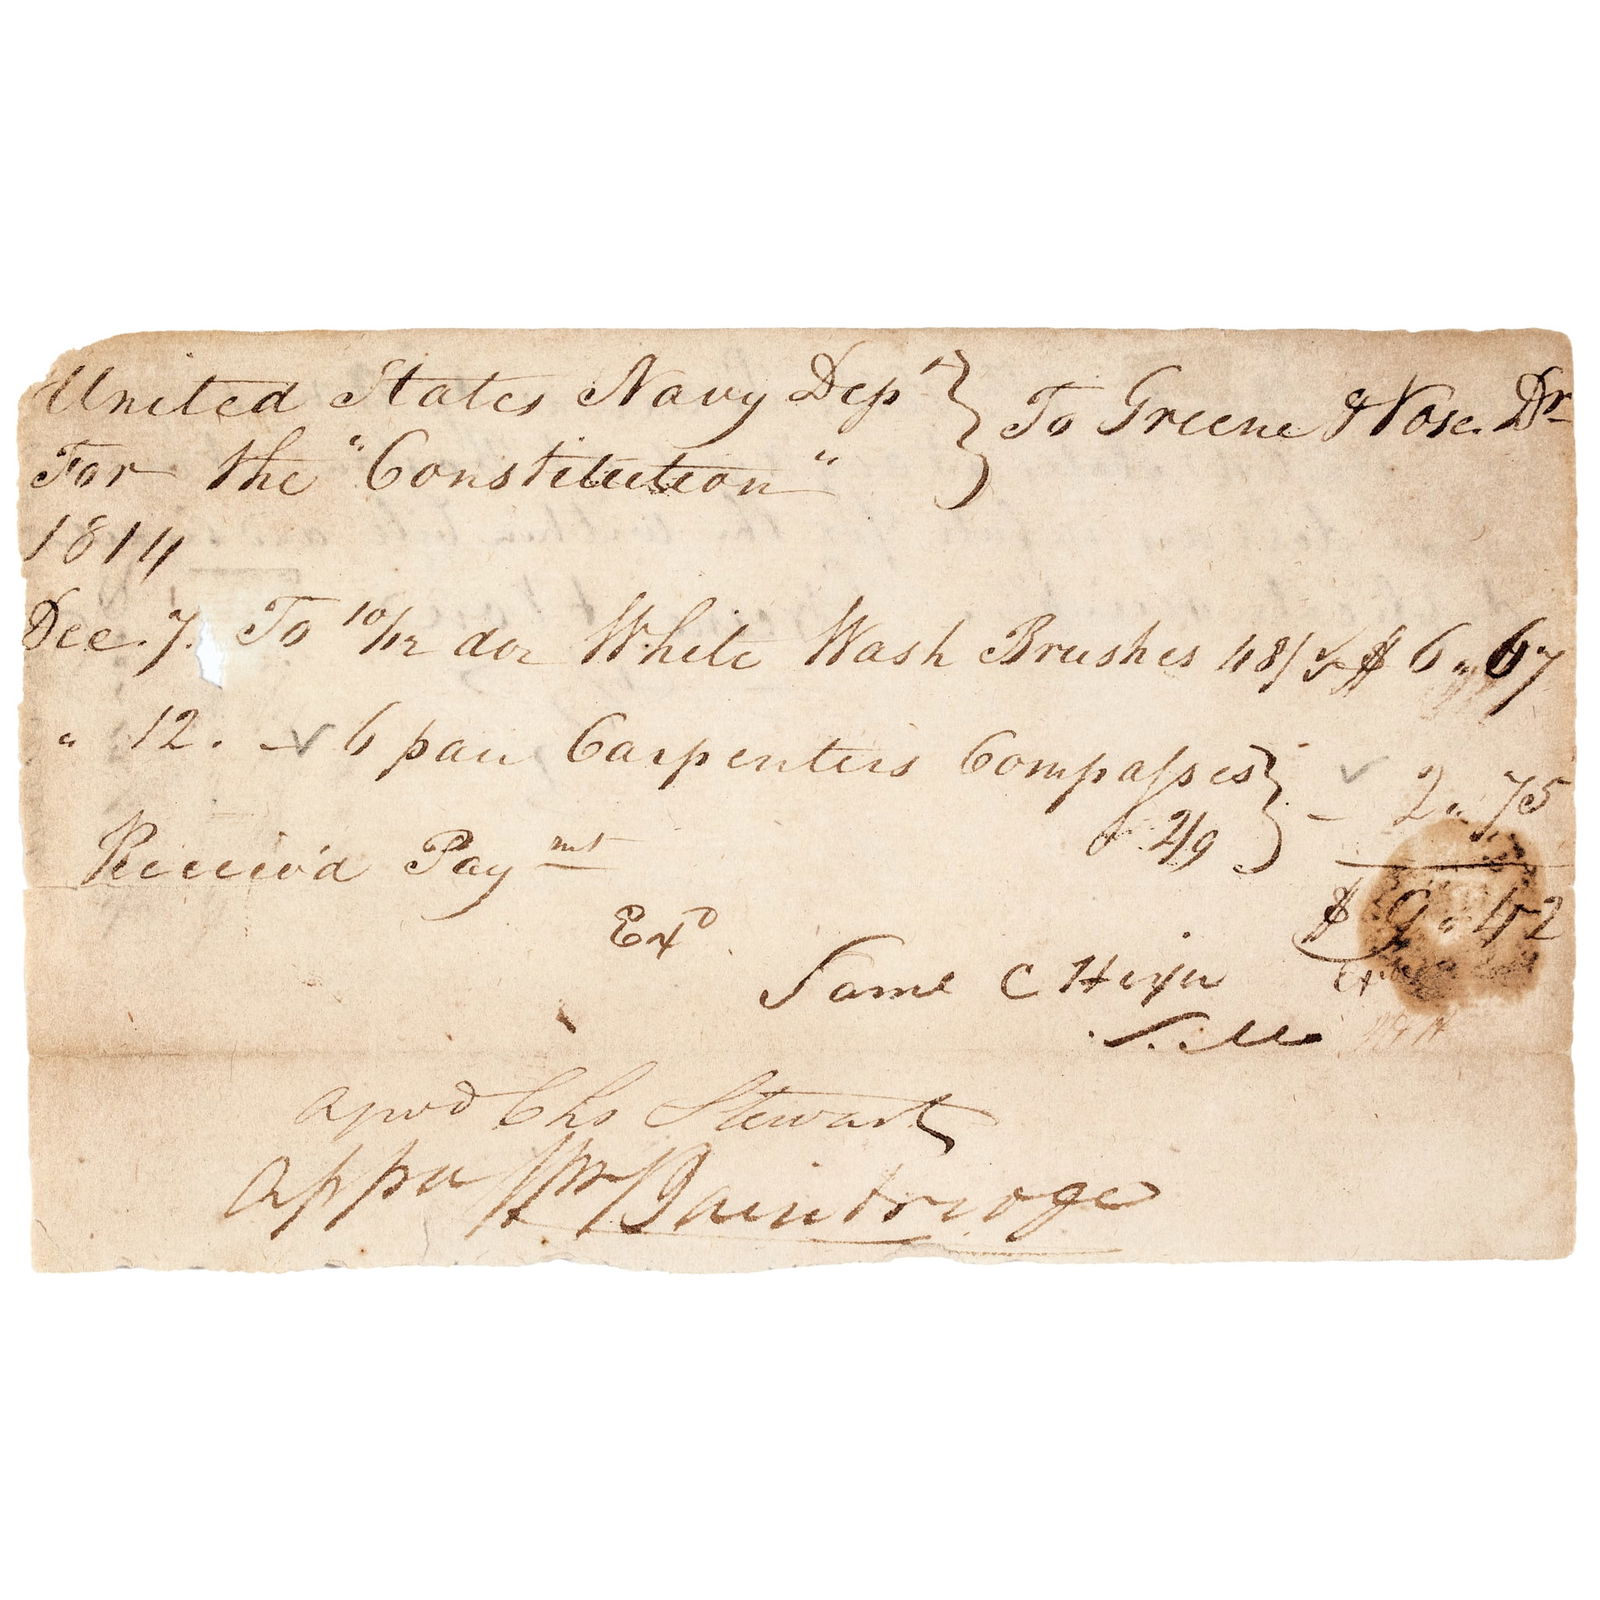 United States Navy Dept } To Greene & Vose. Dr
For the "Constitution"
1814
Dec. 7. To 10/12 doz White Wash Brushes 48/ $ 6 " 67
" 12. - 6 pair Carpenters Compasses } - 2 " 75
@ 2/9
Receiv'd Paymnt
$ 9 " 42
Exd
Saml C
Apovd Chs Stewart
Appd Wm Bainbridge